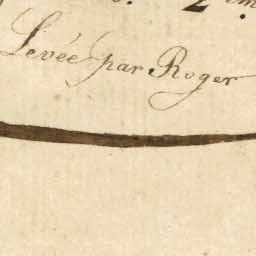 2.em
Levée par Roger